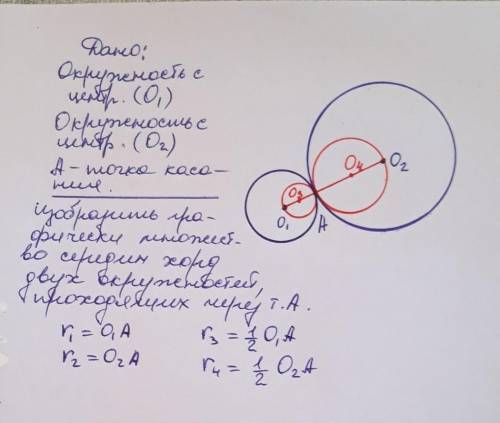 Дано:
Окружность с
центр. (O₁)
Окружность с
центр. (O₂)
A - точка каса-
ния.
изобразить гра-
фически множест-
во середин хорд
двух окружностей,
проходящих через т. A.
r₁ = O₁A
r₂ = O₂A
r₃ = ½ O₁A
r₄ = ½ O₂A
O₁
O₃
A
O₄
O₂